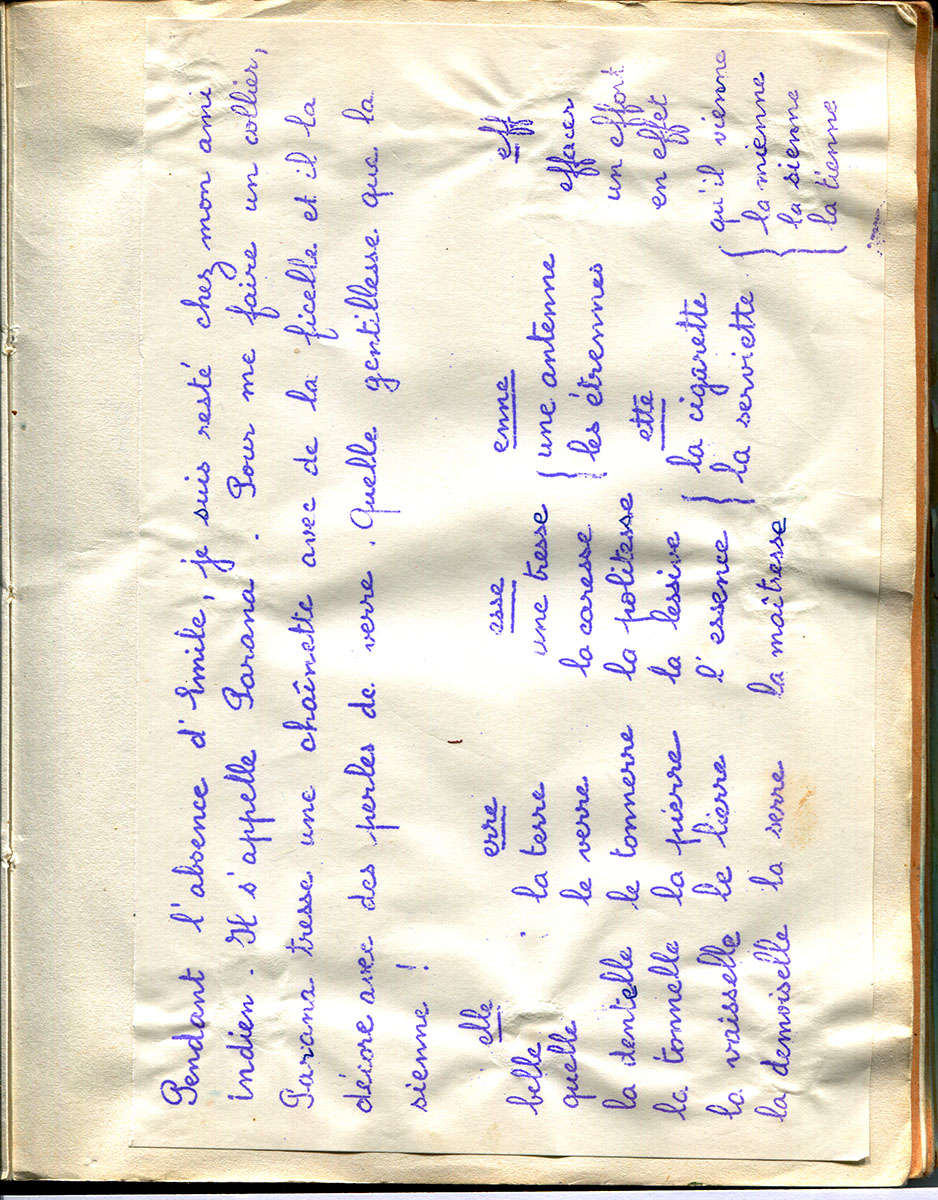 Pendant l'absence d'Emile, je suis resté chez mon ami
indien. Il s'appelle Parana. Pour me faire un collier,
Parana tresse une chaînette avec de la ficelle et il la
décore avec des perles de verre. Quelle gentillesse que la
sienne !
elle
belle
quelle
la dentelle
la tonnelle
la vaisselle
la demoiselle
erre
la terre
le verre
le tonnerre
la pierre
le lierre
la serre
esse
une tresse
la caresse
la politesse
la lessive
l'essence
la maîtresse
enne
une antenne
les étrennes
ette
la cigarette
la serviette
eff
effacer
un effort
en effet
qu'il vienne
la mienne
la sienne
la tienne